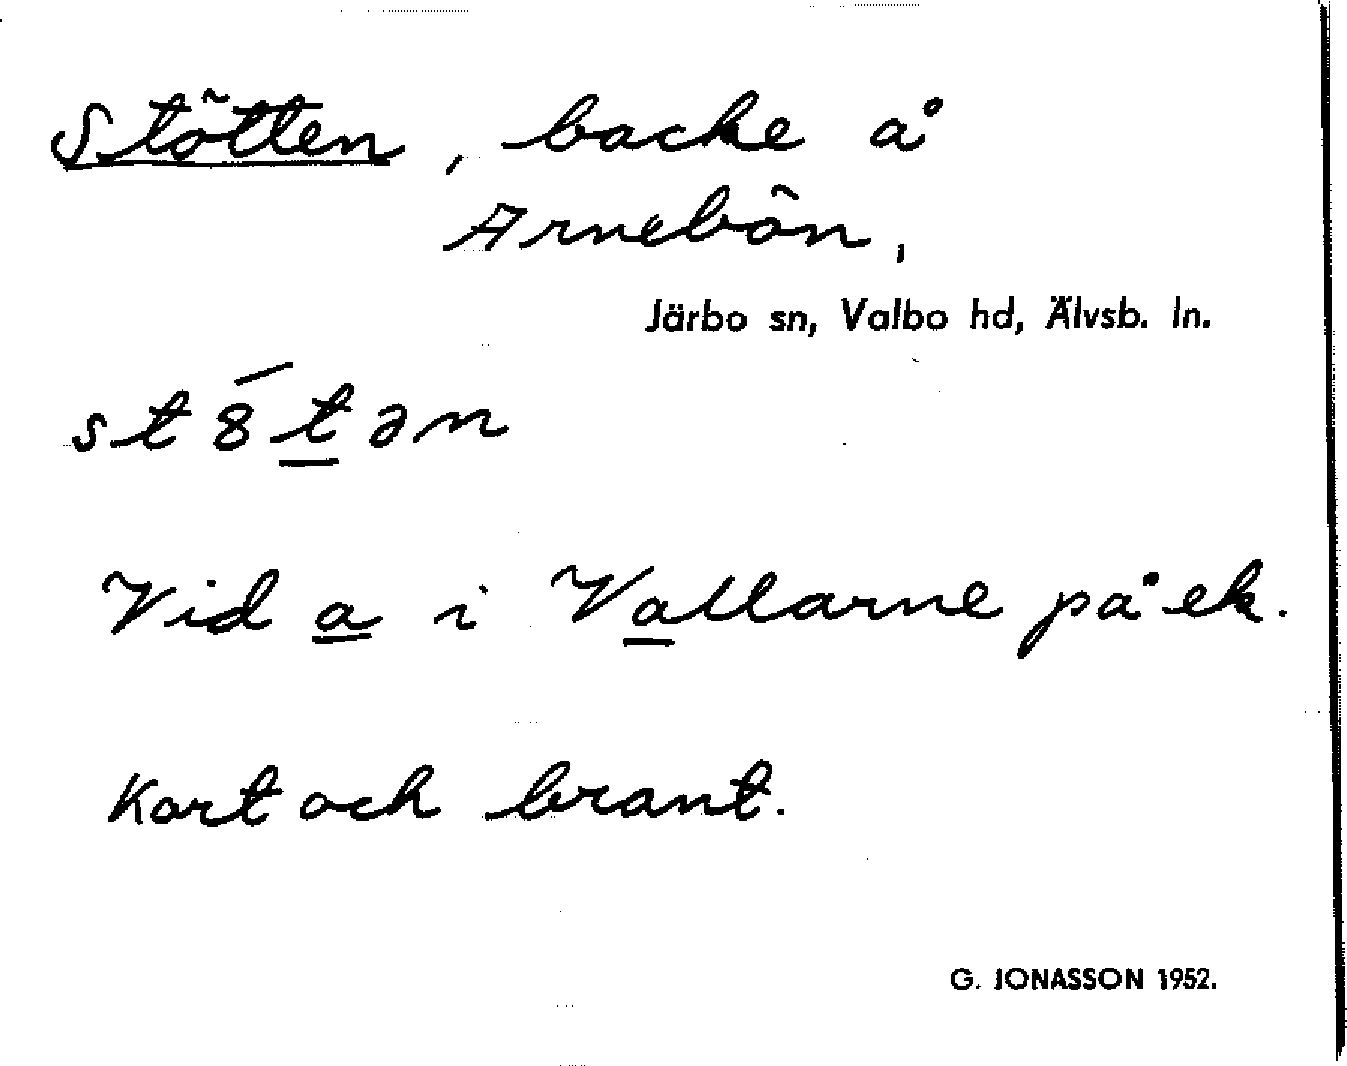 Stötten, backe å
Arnebön,
Järbo sn, Valbo hd, Älvsb. ln.
st8́t̲ən
Vid a̲ i Va̲llarne på ek.
Kort och brant.
G. JONASSON 1952.